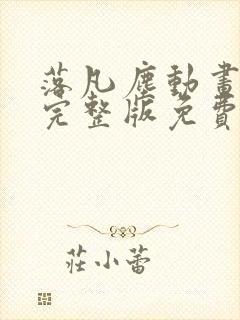 落凡塵動畫
完整版免費
莊小蕾